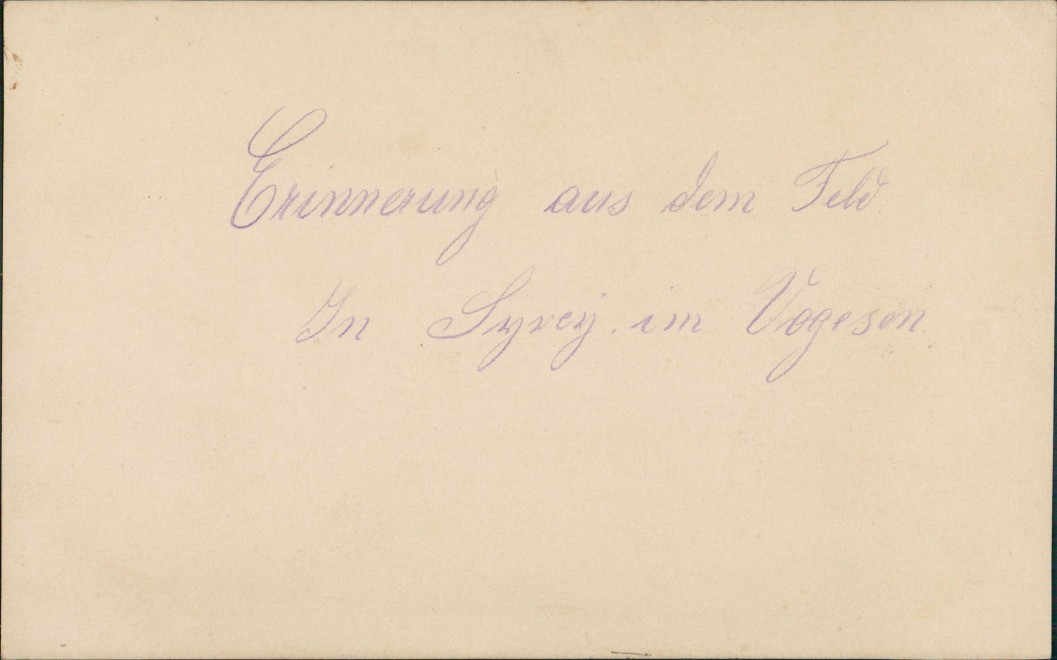 Erinnerung aus dem Feld
In Syrey. im Vogesen.